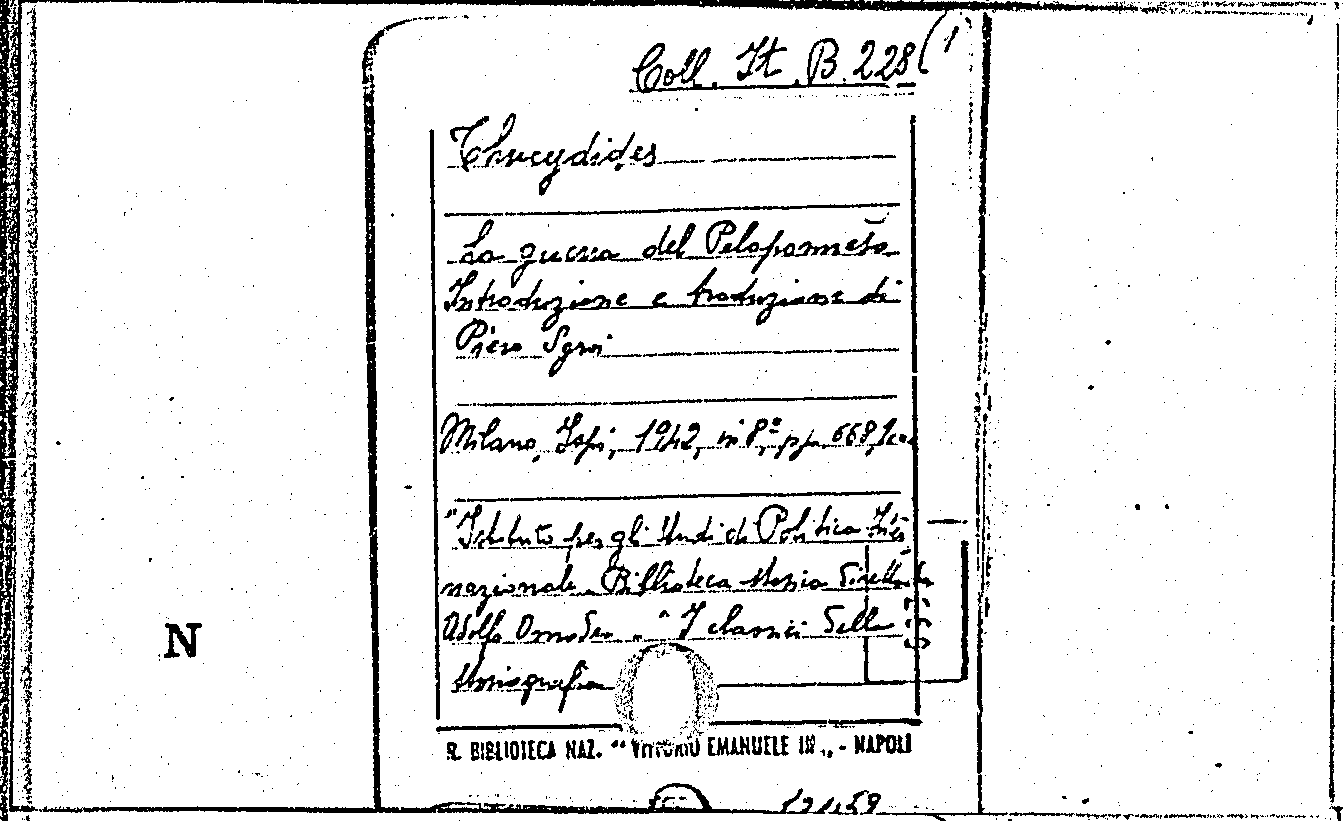 Coll. It. B. 228 (1
Thucydides
La guerra del Peloponneso
Introduzione e traduzione di
Piero Sgroi
Milano, Ispi, 1942, in 8º, pp. 668,
"Istituto per gli Studi di Politica Inter
nazionale. Biblioteca storica diretta da
Adolfo Omodeo." "I classici della
storiografia
R. BIBLIOTECA NAZ. "VITTORIO EMANUELE III„ - NAPOLI
N